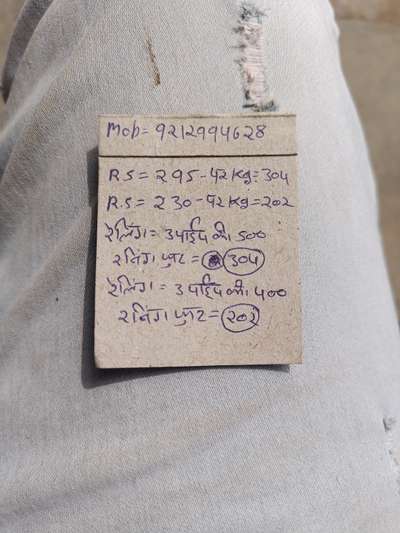 Mob= 9212994628
R.S = 295-42 Kg = 304
R.S = 230-42 Kg = 202
रेलिंग = 3 पाईप की 500
रनिंग फुट = 304
रेलिंग = 3 पाईप की 400
रनिंग फुट = 202